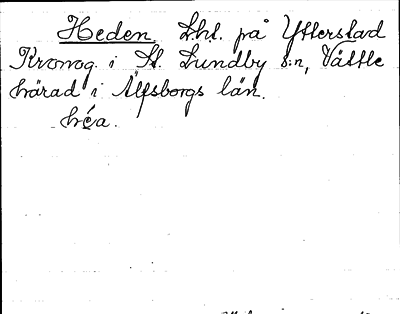 Heden, Lht. på Ytterstad
Kronog. i St. Lundby s:n, Vättle
härad i Älfsborgs län.
héa.